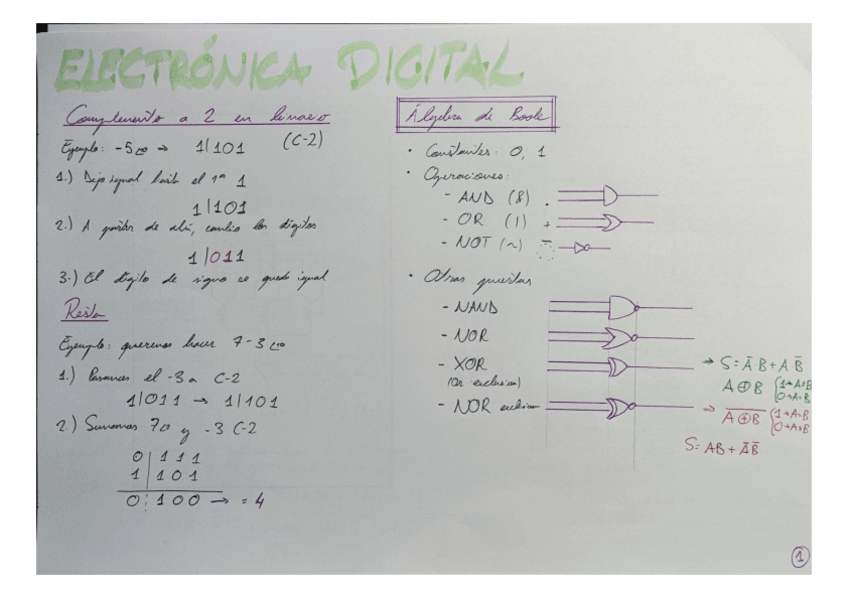 ELECTRÓNICA DIGITAL
Complemento a 2 en binario
Ejemplo: -5 → 1|101 (C-2)
1.) Dejo igual hasta el 1er 1
1|101
2.) A partir de ahí, cambio los dígitos
1|011
3.) El dígito de signo se queda igual
Resta
Ejemplo: queremos hacer 7-3
1.) Pasamos el -3 a C-2
1|011 → 1|101
2.) Sumamos 7 y -3 C-2
0|111
1|101
0|100 → = 4
Álgebra de Boole
• Constantes: 0, 1
• Operaciones:
- AND (&) .
- OR (|) +
- NOT (~)
• Otras puertas
- NAND
- NOR
- XOR
(Or exclusiva)
→ S = A̅B + AB̅
A⊕B {1→A≠B
0→A=B
- NOR exclusiva
→ A̅⊕̅B̅ {1→A=B
0→A≠B
S = AB + A̅B̅
1